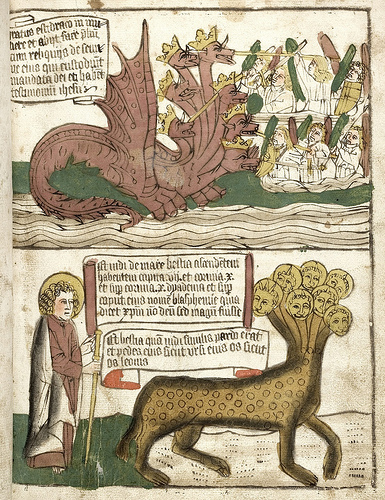 ratus est draco in mu
liere et abiit face pliu
cum reliquis de semi
ne eius qui custodiut
mandata dei et habet
testimoniu ihesu
Et vidi de mare bestia ascendetem
habentem capita vij et cornua x
et sup cornua x dyademata et sup
caput eius nomē blasphemie quia
dicet xpm nō deū sed magū fuisse
Et bestia quā vidi similis pardo erat
et pedes eius sicut ursi et os eius sicut
os leonis